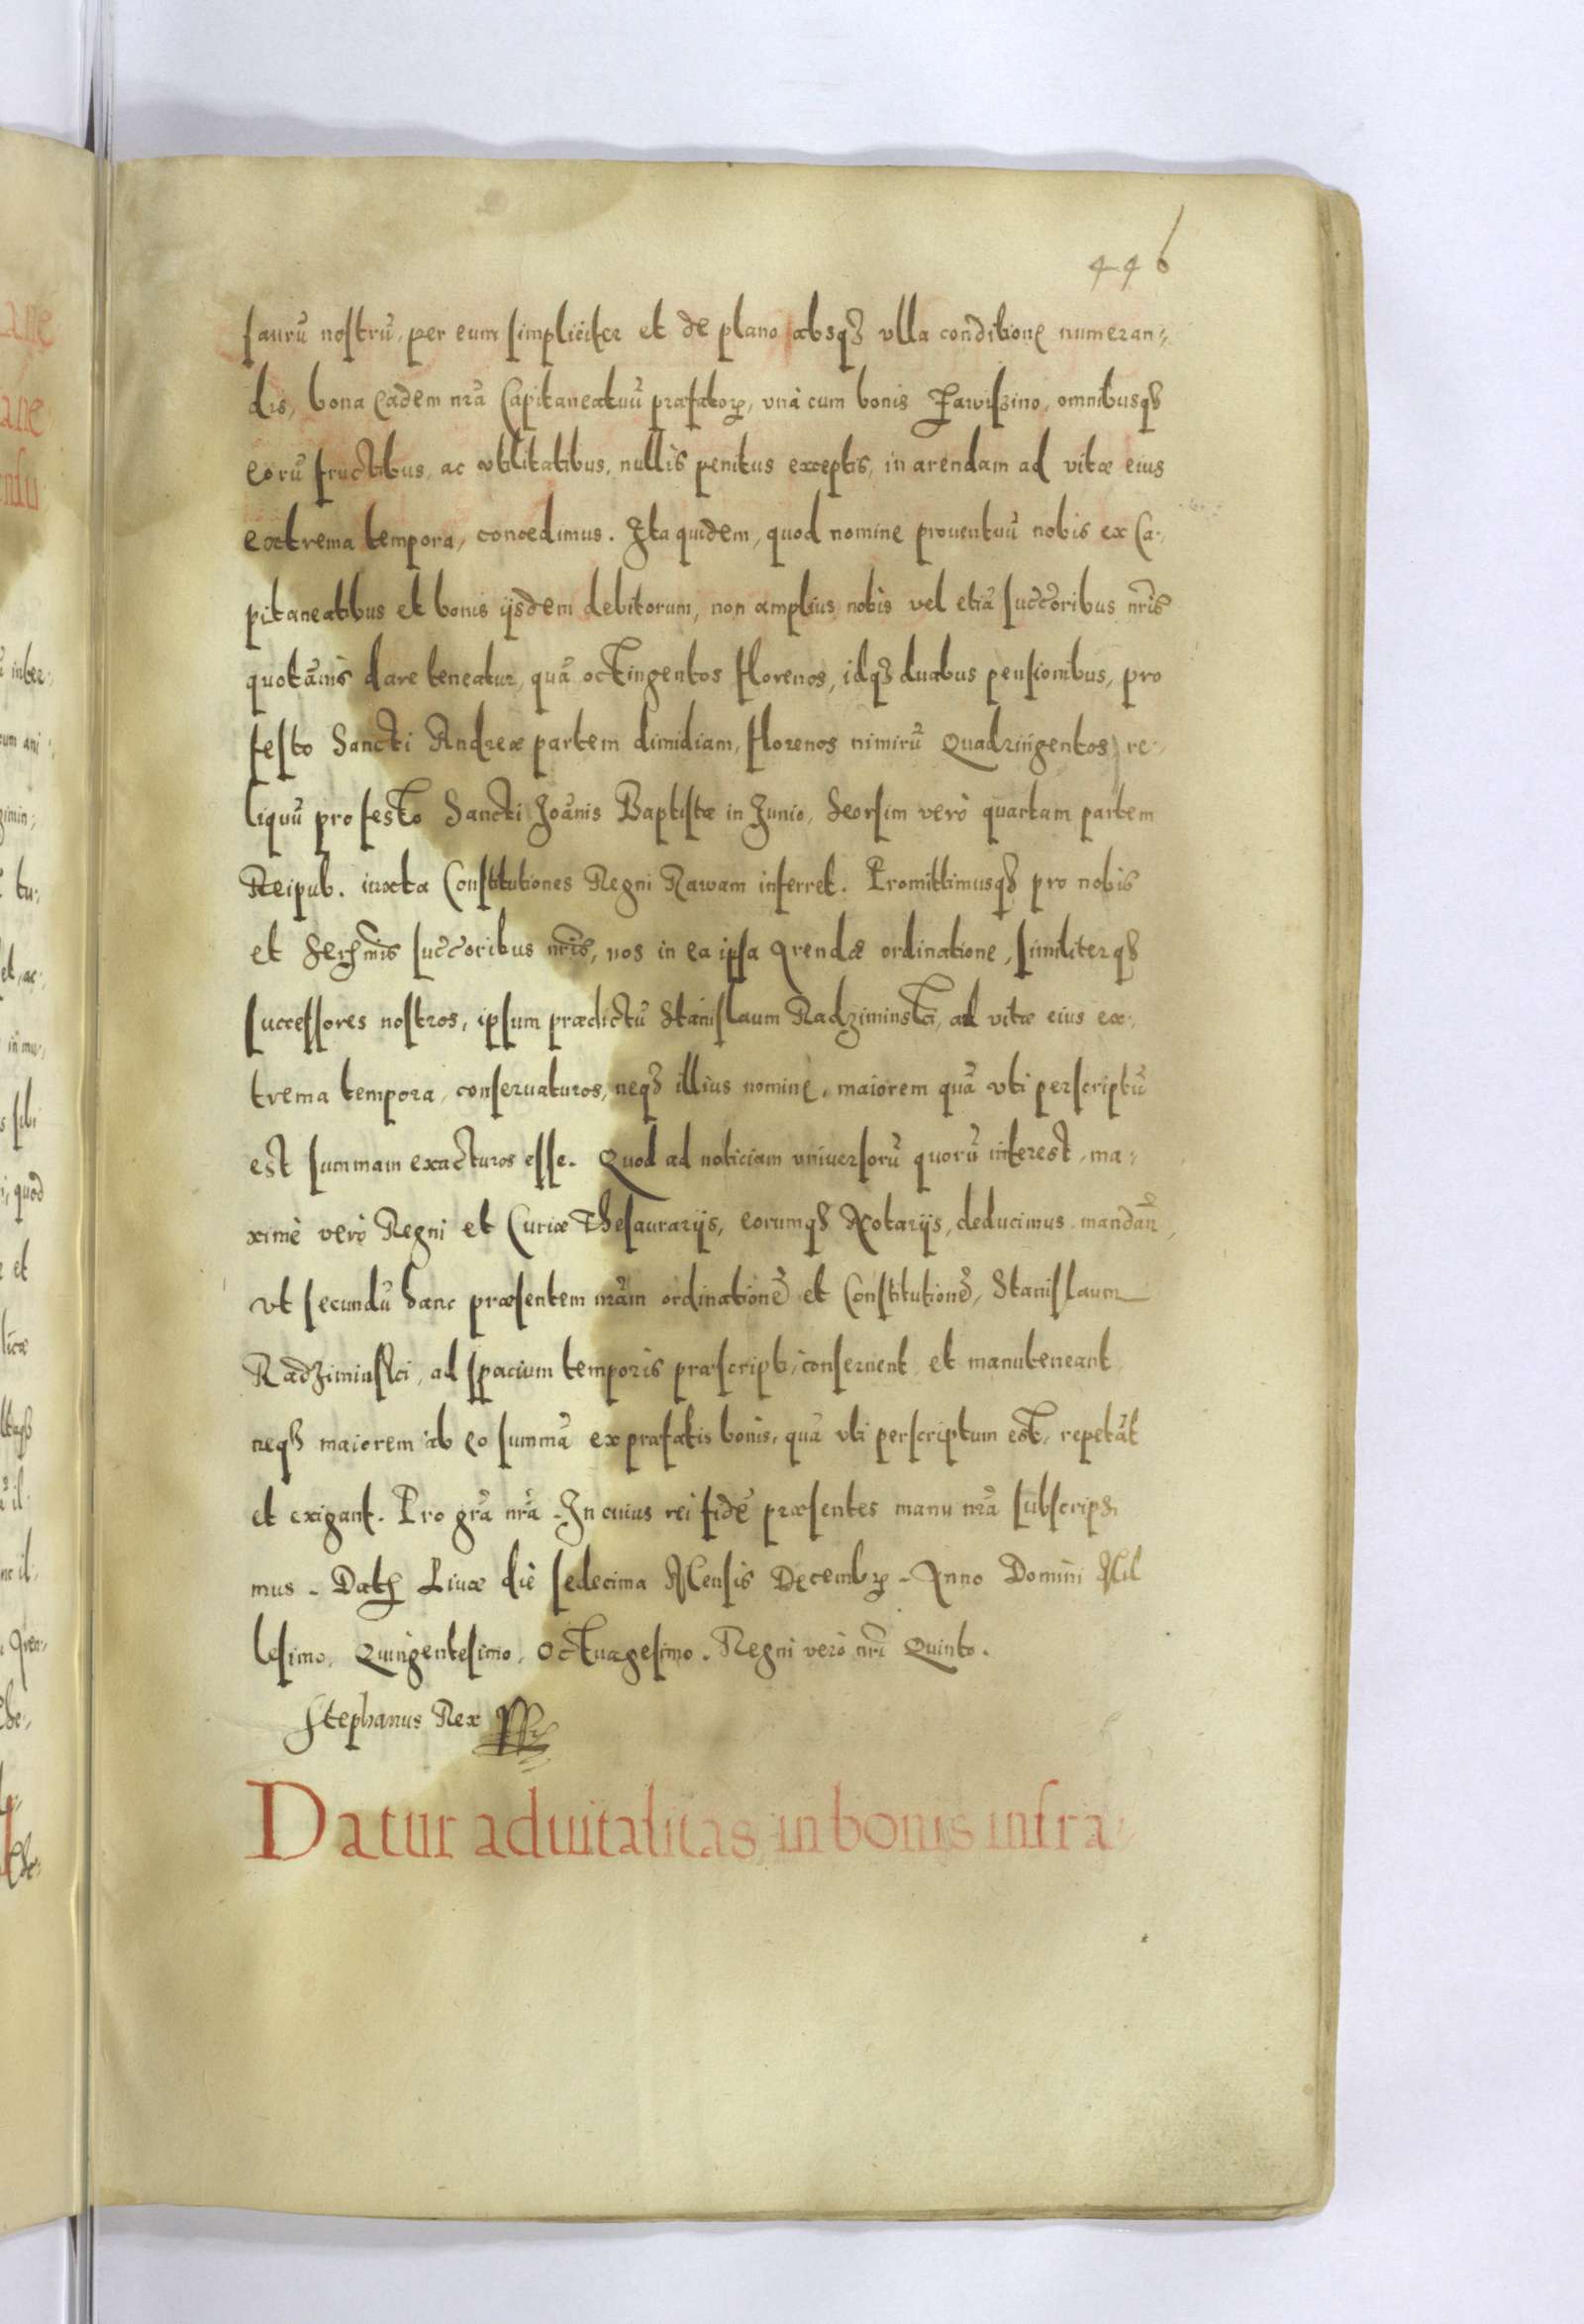 446
saurũ nostrũ, per eum simpliciter et de plano absqꝫ vlla conditione numeran⸗
dis, bona eadem nr̃a Capitaneatuũ præfatorꝝ, vnà cum bonis Jarviszino, omnibusqꝫ
eorũ fructibus, ac vtilitatibus, nullis penitus exceptis, in arendam ad vitæ eius
extrema tempora, concedimus. Ita quidem, quod nomine prouentuũ nobis ex Ca⸗
pitaneatibus et bonis ijsdem debitorum, non amplius nobis vel etiã succ̃oribus nr̃is
quotãnis dare teneatur, quã octingentos florenos, idqꝫ duabus pensionibus, pro
festo Sancti Andreæ partem dimidiam, florenos nimirũ Quadringentos, re⸗
liquũ pro festo Sancti Joãnis Baptistæ in Junio, Seorsim verò quartam partem
Reipub. iuxta Constitutiones Regni Rawam inferret. Promittimusqꝫ pro nobis
et Serẽmis succ̃oribus nr̃is, nos in ea ipsa Arendæ ordinatione, similiterqꝫ
successores nostros, ipsum prædictũ Stanislaum Radziminski, ad vitæ eius ex⸗
trema tempora, conseruaturos, neqꝫ illius nomine, maiorem quã vti perscriptũ
est summam exacturos esse. Quod ad noticiam vniuersorũ quorũ interest, ma⸗
ximè verò Regni et Curiæ Thesaurarijs, eorumqꝫ Notarijs, deducimus mandañ,
vt secundũ hanc præsentem nr̃am ordinationẽ et Constitutionẽ, Stanislaum
Radziminski, ad spacium temporis præscripti, conseruent et manuteneant
neqꝫ maiorem ab eo summã ex præfatis bonis, quã vti perscriptum est, repetãt
et exigant. Pro gr̃a nr̃a. In cuius rei fidẽ præsentes manu nr̃a subscripsi⸗
mus. Datꝫ Livæ diè sedecima Mensis Decembꝝ. Anno Domini Mil
lesimo, Quingentesimo, Octuagesimo. Regni verò nr̃i Quinto.
Stephanus Rex
Datur aduitalitas in bonis infra⸗